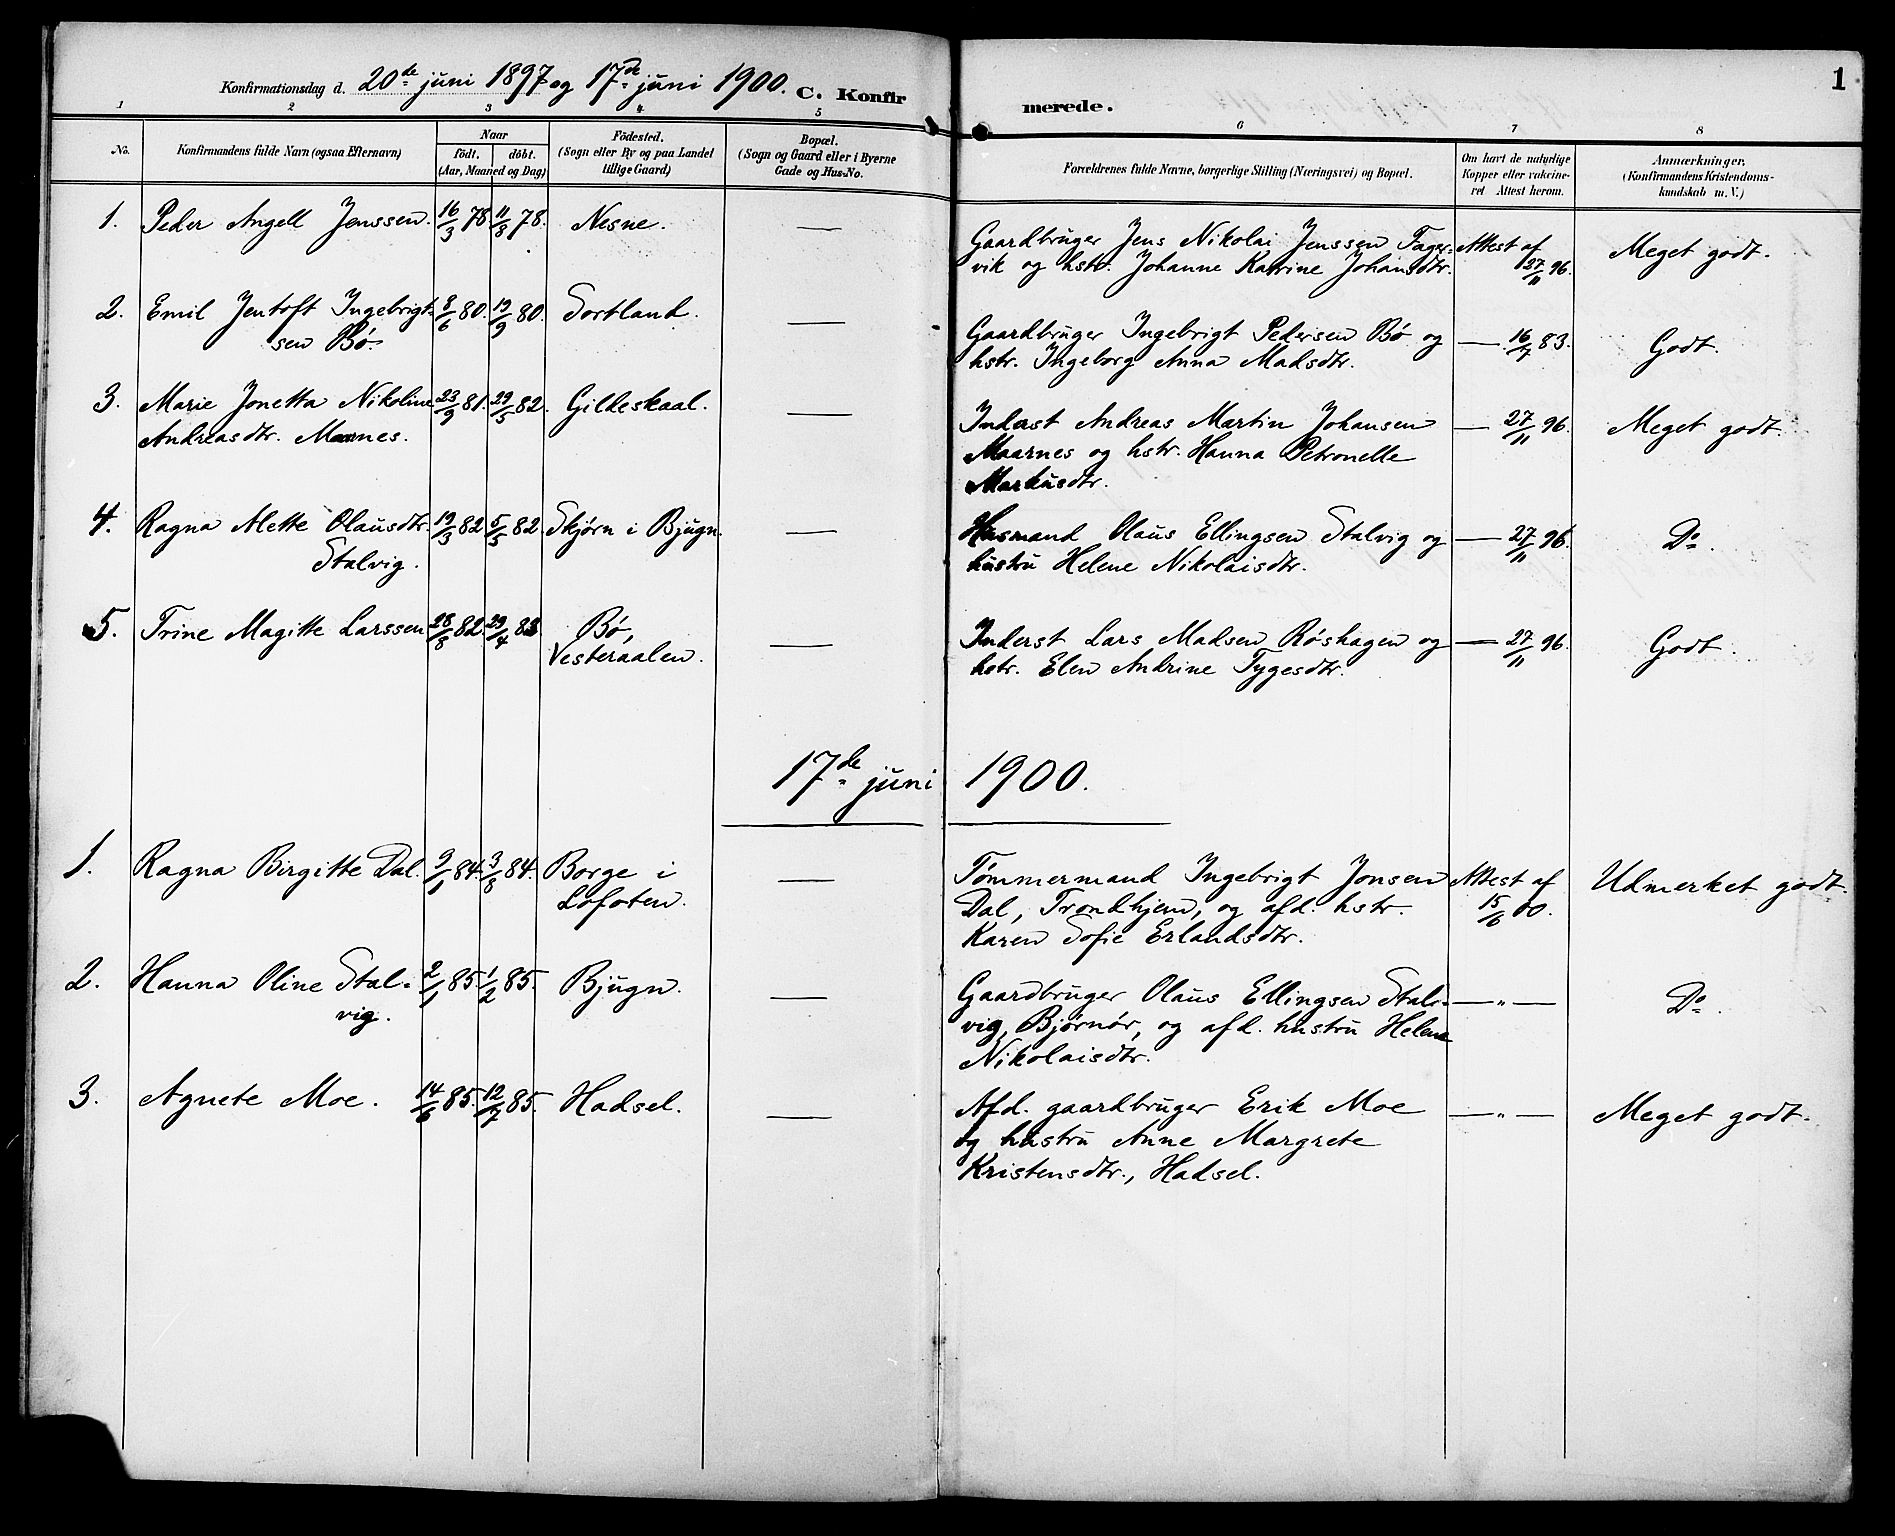 1
Konfirmationsdag d. 20de juni 1897 og 17de juni 1900. C. Konfirmerede.
1 2 3 4 5 6 7 8
No. Konfirmandens fulde Navn (ogsaa Efternavn) Naar födt. döbt. (Aar, Maaned og Dag) Födested. (Sogn eller By og paa Landet tillige Gaard) Bopæl. (Sogn og Gaard eller i Byerne Gade og Hus-No. Forældrenes fulde Navne, borgerlige Stilling (Næringsvei) og Bopæl. Om havt de naturlige Kopper eller vakcineret Attest herom. Anmærkninger. (Konfirmandens Kristendomskundskab m. V.)
1. Peder Angell Jenssen. 16/3 78 11/8 78. Nesne. — Gaardbruger Jens Nikolai Jenssen Tager- Attest af Meget godt.
vik og hstr. Johanne Katrine Johansdtr. 27/11 96.
2. Emil Jentoft Ingebrigt- 8/6 80. 19/9 80. Sortland. — Gaardbruger Ingebrigt Pedersen Bø og — 16/7 83. Godt.
sen Bø. hstr. Ingeborg Anna Madsdtr.
3. Marie Jonetta Nikoline 23/9 81. 29/5 82. Gildeskaal. — Inderst Andreas Martin Johansen — 27/11 96. Meget godt.
Andreasdtr. Maarnes. Maarnes og hstr. Hanna Petronelle
Markusdtr.
4. Ragna Mette Olausdtr. 19/3 82 5/5 82. Skjørn i Bjugn. — Husmand Olaus Ellingsen Stalvig og — 27/11 96. Do.
Stalvig. hustru Helene Nikolaisdtr.
5. Trine Magitte Larssen 28/8 82. 29/4 83 Bø, — Inderst Lars Madsen Røshagen og — 27/11 96. Godt.
Vesteraalen. hstr. Elen Andrine Tygesdtr.
17de juni 1900.
1. Ragna Birgitte Dal. 9/1 84. 3/8 84. Borge i — Tømmermand Ingebrigt Jonsen Attest af Udmerket godt.
Lofoten. Dal, Trondhjem, og afd. hstr. 15/6 00.
Karen Sofie Erlandsdtr.
2. Hanna Oline Stal- 2/1 85. 1/2 85. Bjugn. — Gaardbruger Olaus Ellingsen Stal- — „ — Do.
vig. vig, Bjørnør, og afd. hustru Helene
Nikolaisdtr.
3. Agnete Moe. 14/6 85. 12/7 85. Hadsel. — Afd. gaardbruger Erik Moe — „ — Meget godt.
og hustru Anne Margrete
Kristensdtr., Hadsel.